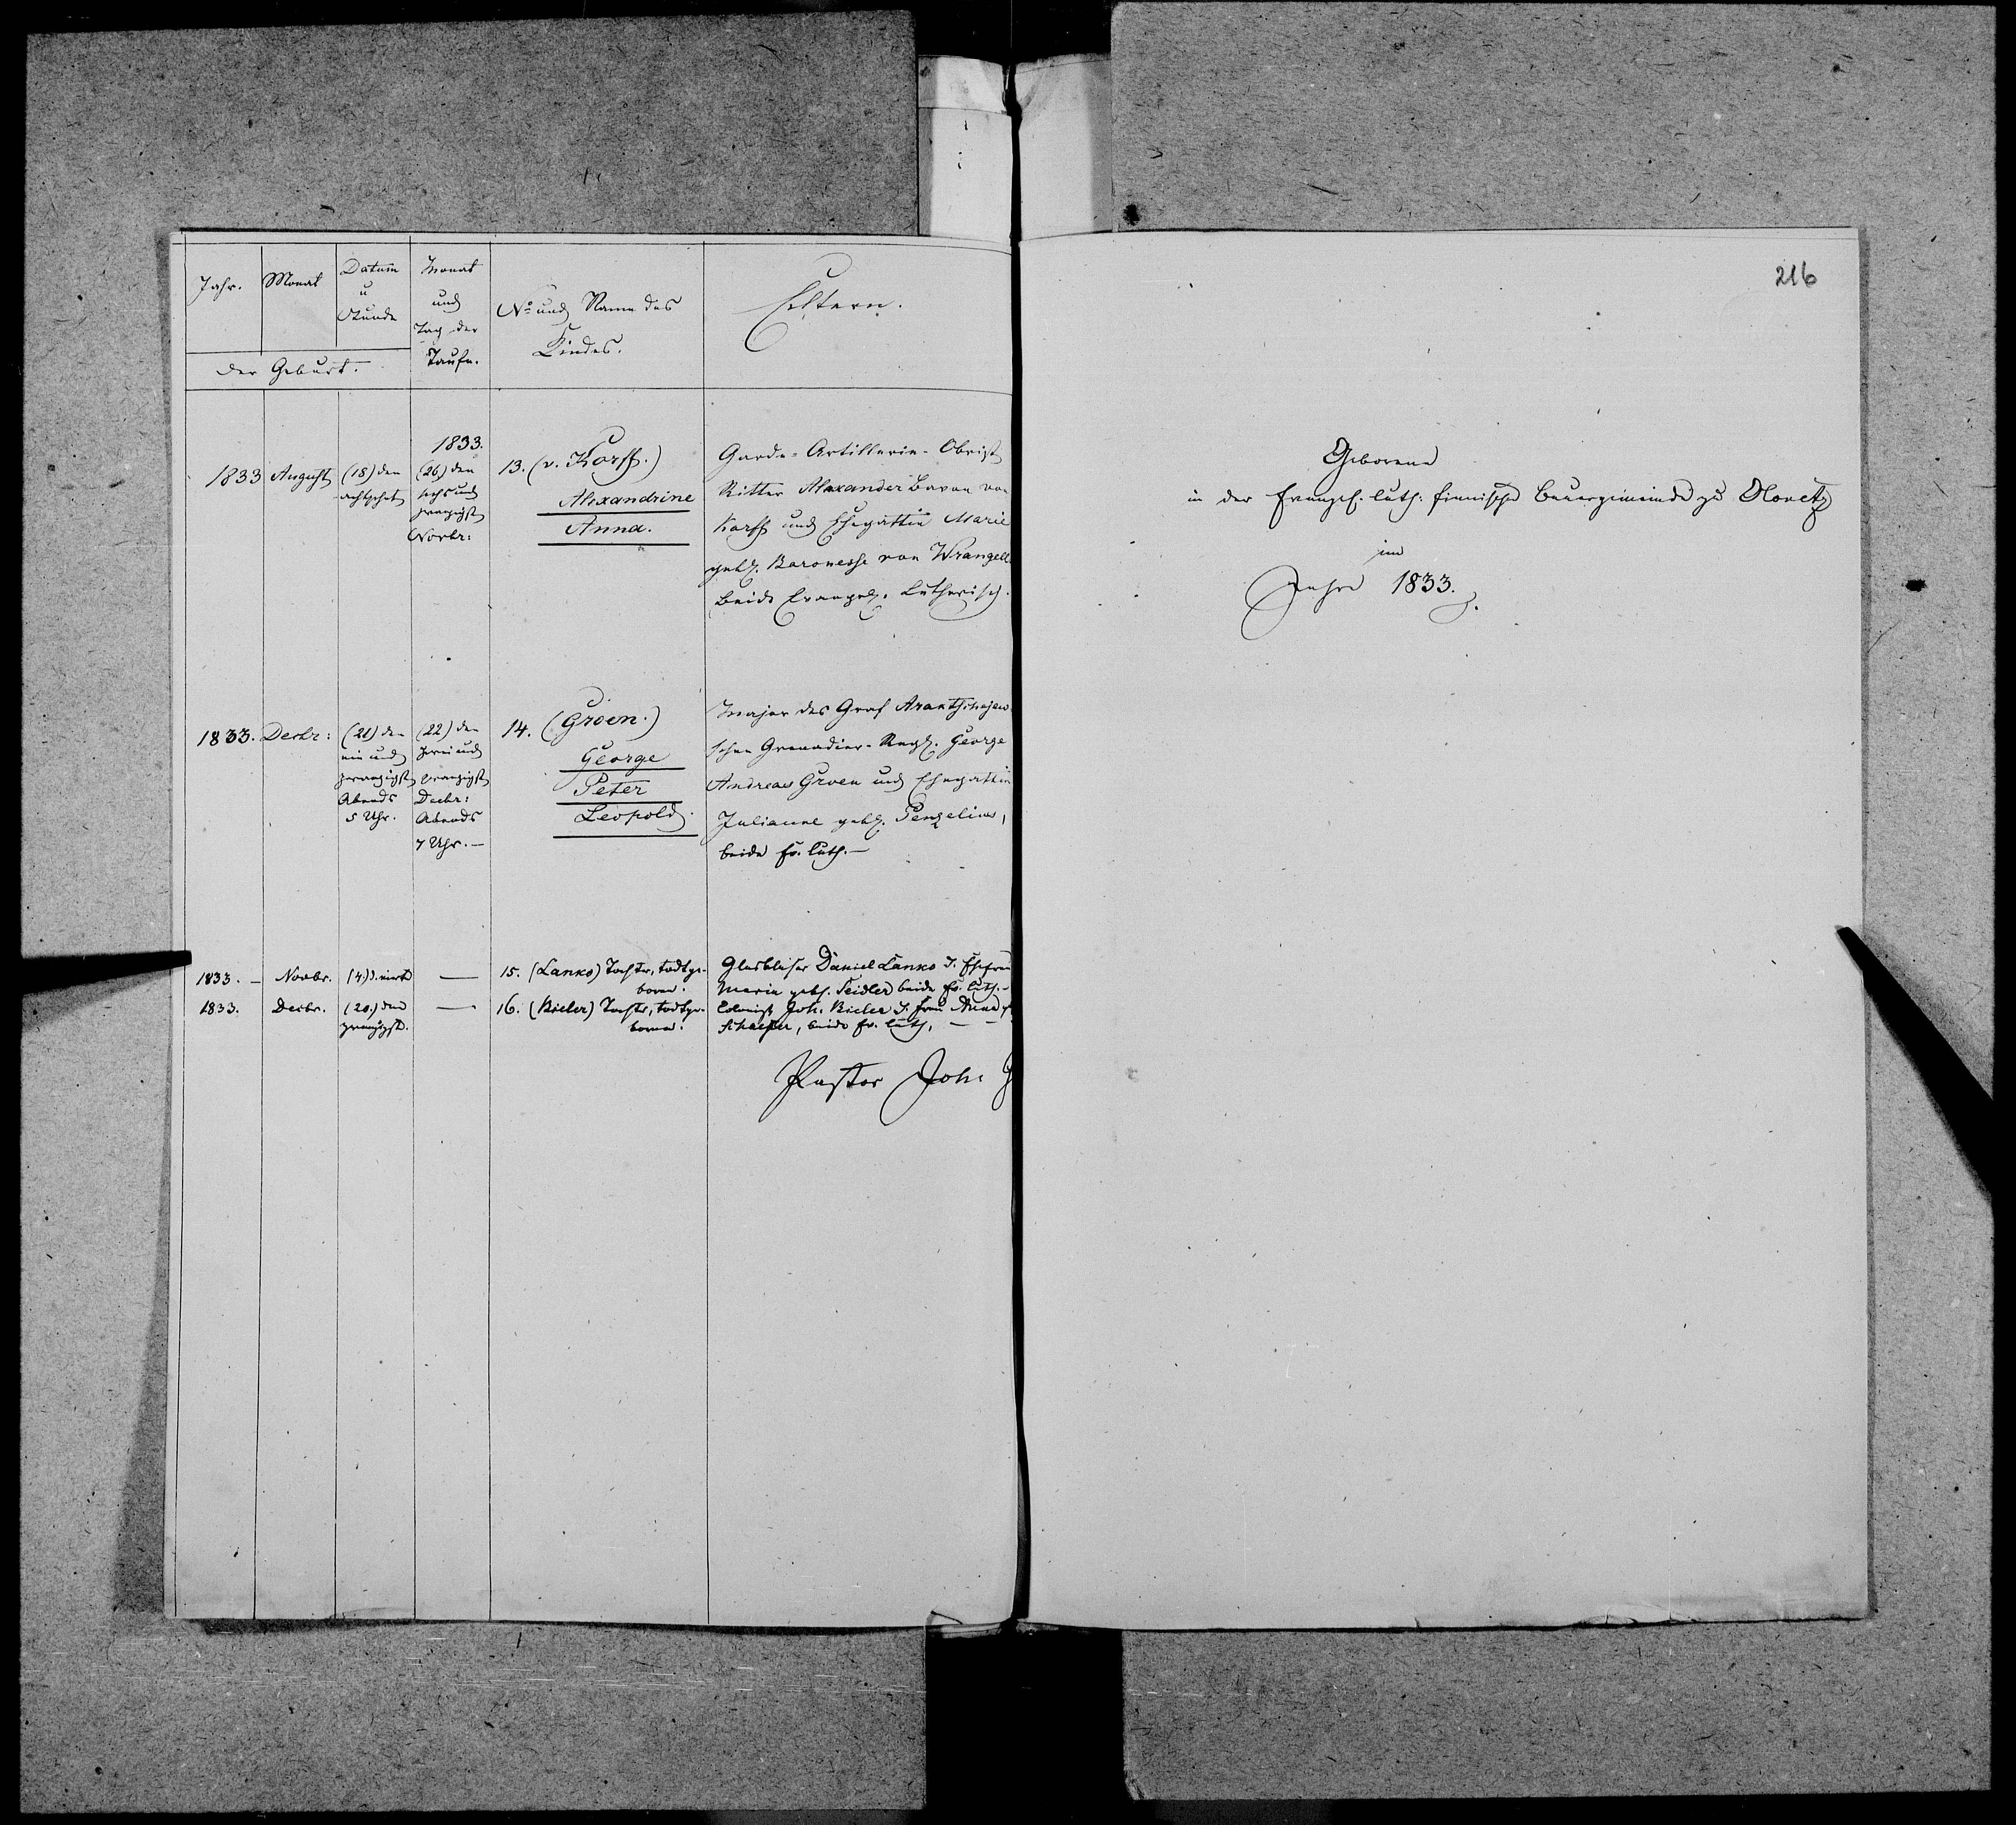 Jahr.
Monat
Datum
u
Stunde
der Geburt.
Monat
und
Tag der
Taufe.
No und Name des
Kindes.
Eltern.
1833
August
(18) den
achtzehnt
1833.
(26) den
sechs und
zwanzigst
Novbr:
13. (v. Korff.)
Alexandrine
Anna.
Garde-Artillerie-Obrist
Ritter Alexander Baron von
Korff und Ehegattin Marie
gebh. Baronesse von Wrangell
beide Evangel. Lutherisch.
1833.
Decbr:
(21) den
ein und
zwanzigst
Abends
5 Uhr.
(22) den
zwei und
zwanzigst
Decbr:
Abends
7 Uhr. —
14. (Groen.)
George
Peter
Leopold.
Major des Graf Araktschejew
schen Grenadier-Regt. George
Andreas Groen und Ehegattin
Julianne gebh. Penzelius,
beide Ev. Luth. —
1833. —
Novbr.
(4) d. viert
—
15. (Lanko) Tochter, todtge-
boren.
Glasbläser Daniel Lanko d. Ehefrau
Maria gebh. Seidler beide Ev. Luth. —
1833.
Decbr.
(20.) den
zwanzigst.
—
16. (Bieler) Tochter, todtge-
boren.
Colonist Joh. Bieler d. Frau
Schaefer, beide Ev. Luth. — —
Pastor Joh.
216
Geborene
in der Evangel. luth. finnische Bauergemeinde zu
im
Jahre 1833.